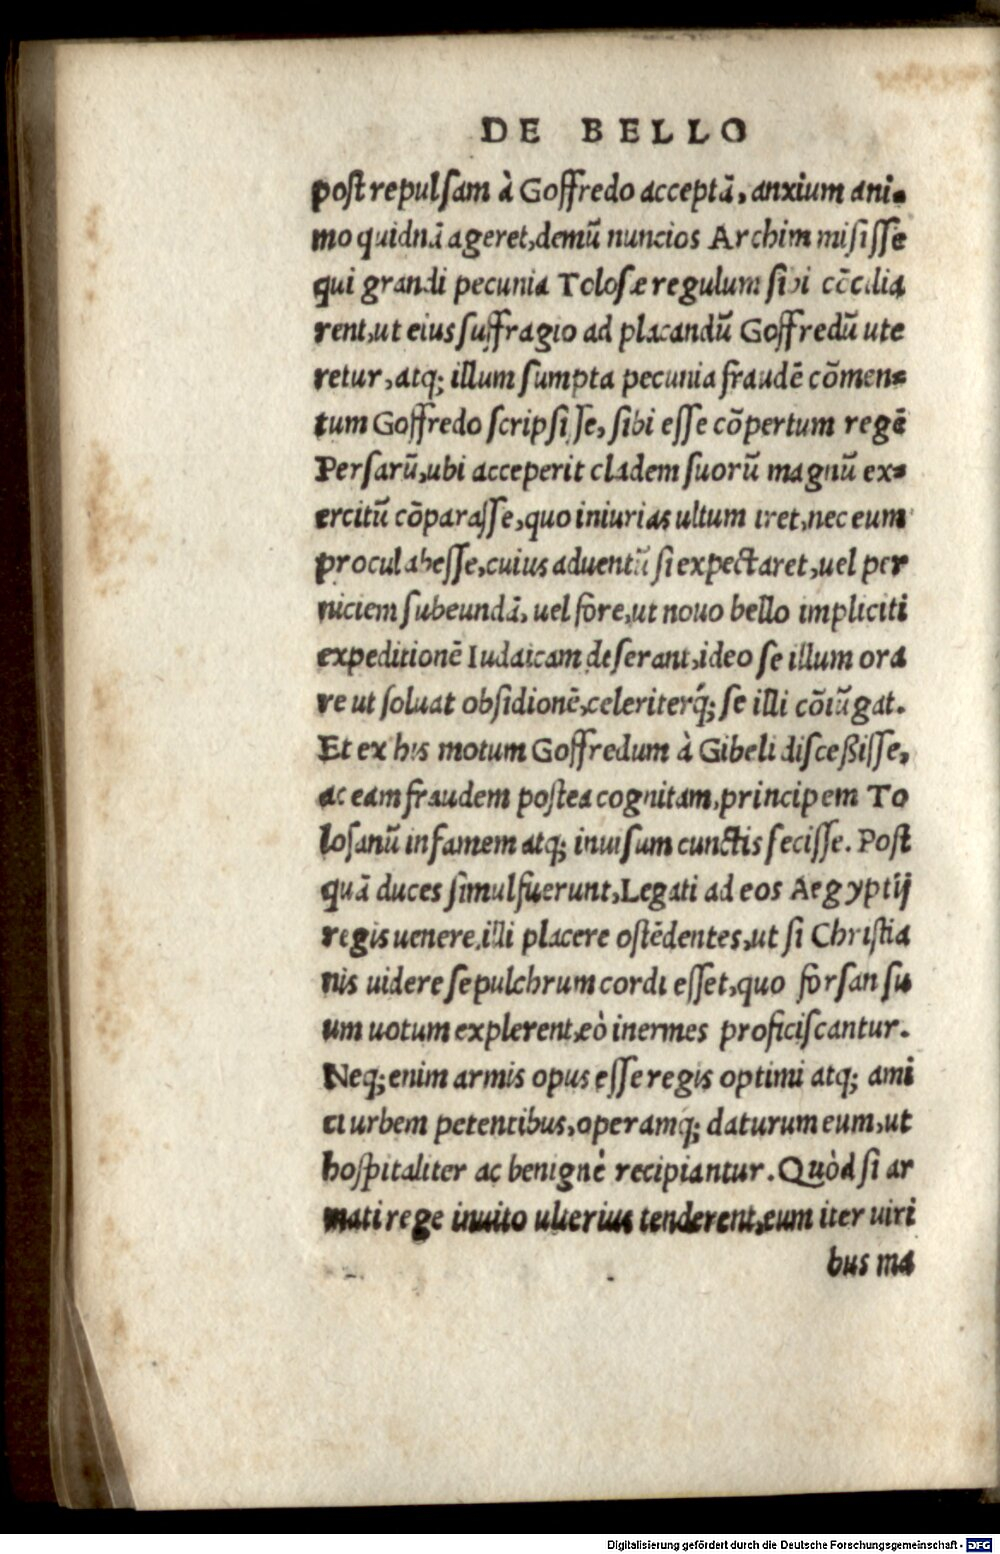 DE BELLO
post repulsam à Goffredo acceptā, anxium ani-
mo quidnā ageret, demū nuncios Archim misisse
qui grandi pecunia Tolosæ regulum sibi cōcilia
rent, ut eius suffragio ad placandū Goffredū ute
retur, atq; illum sumpta pecunia fraudē cōmen-
tum Goffredo scripsisse, sibi esse cōpertum regē
Persarū, ubi acceperit cladem suorū magnū ex-
ercitū cōparasse, quo iniurias ultum iret, nec eum
procul abesse, cuius aduentū si expectaret, uel per
niciem subeundā, uel fore, ut nouo bello impliciti
expeditionē Iudaicam deserant, ideo se illum ora
re ut soluat obsidionē, celeriterq́; se illi cōiūgat.
Et ex his motum Goffredum à Gibeli disceßisse,
ac eam fraudem postea cognitam, principem To
losanū infamem atq; inuisum cunctis fecisse. Post
quā duces simul fuerunt, Legati ad eos Aegyptij
regis uenere, illi placere ostēdentes, ut si Christia
nis uidere sepulchrum cordi esset, quo forsan su
um uotum explerent, eò inermes proficiscantur.
Neq; enim armis opus esse regis optimi atq; ami
ci urbem petentibus, operamq́; daturum eum, ut
hospitaliter ac benignè recipiantur. Quòd si ar
mati rege inuito ulterius tenderent, eum iter uiri
bus ma
Digitalisierung gefördert durch die Deutsche Forschungsgemeinschaft - DFG